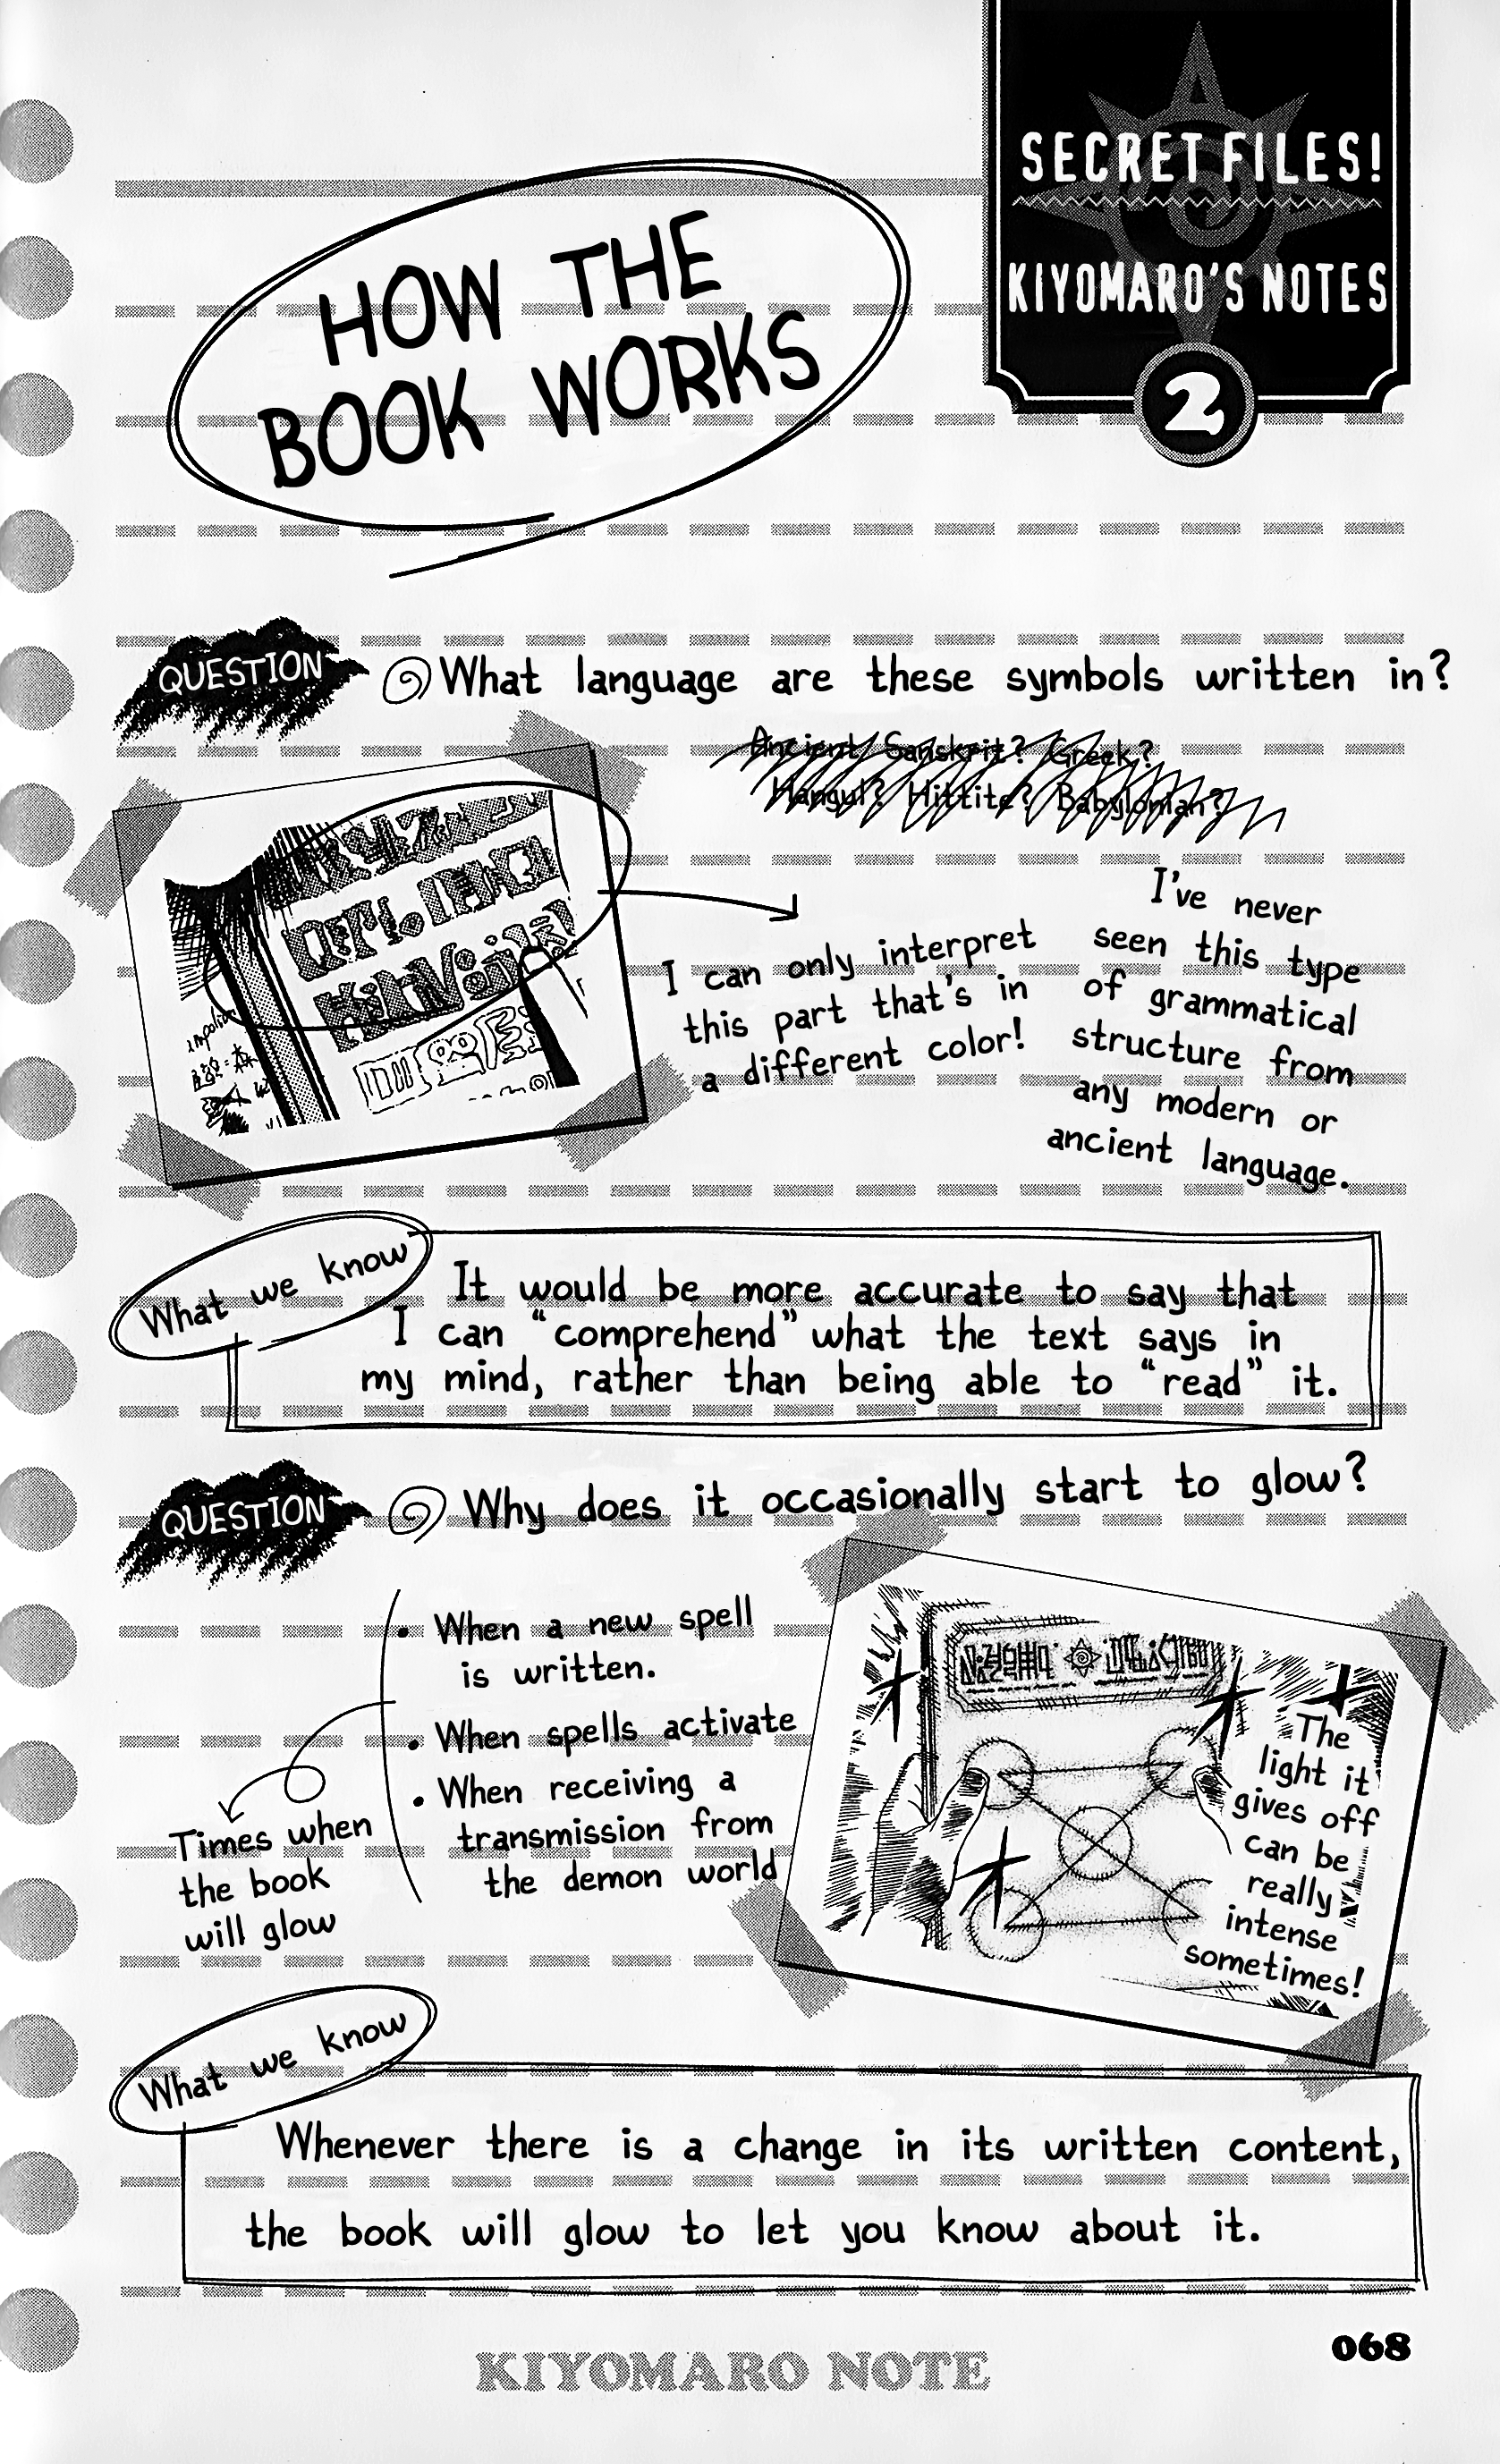 SECRET FILES!
KIYOMARO'S NOTES
2
HOW THE
BOOK WORKS
QUESTION
What language are these symbols written in?
Ancient Sanskrit? Greek?
Hangul? Hittite? Babylonian?
I can only interpret
this part that's in
a different color!
I've never
seen this type
of grammatical
structure from
any modern or
ancient language.
What we know
It would be more accurate to say that
I can "comprehend" what the text says in
my mind, rather than being able to "read" it.
QUESTION
Why does it occasionally start to glow?
• When a new spell
is written.
• When spells activate
• When receiving a
transmission from
the demon world
Times when
the book
will glow
The
light it
gives off
can be
really
intense
sometimes!
What we know
Whenever there is a change in its written content,
the book will glow to let you know about it.
KIYOMARO NOTE
068